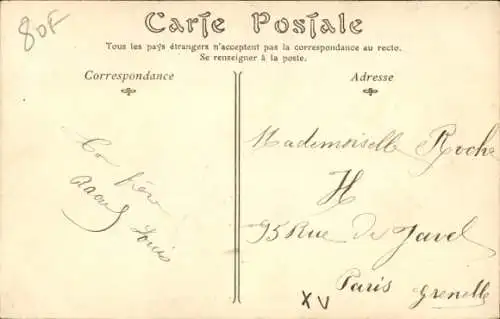 80F
Carte Postale
Tous les pays étrangers n'acceptent pas la correspondance au recto.
Se renseigner à la poste.
Correspondance
Adresse
Mademoiselle Roche
H
95 Rue de Javel
Paris Grenelle
XV
Louis